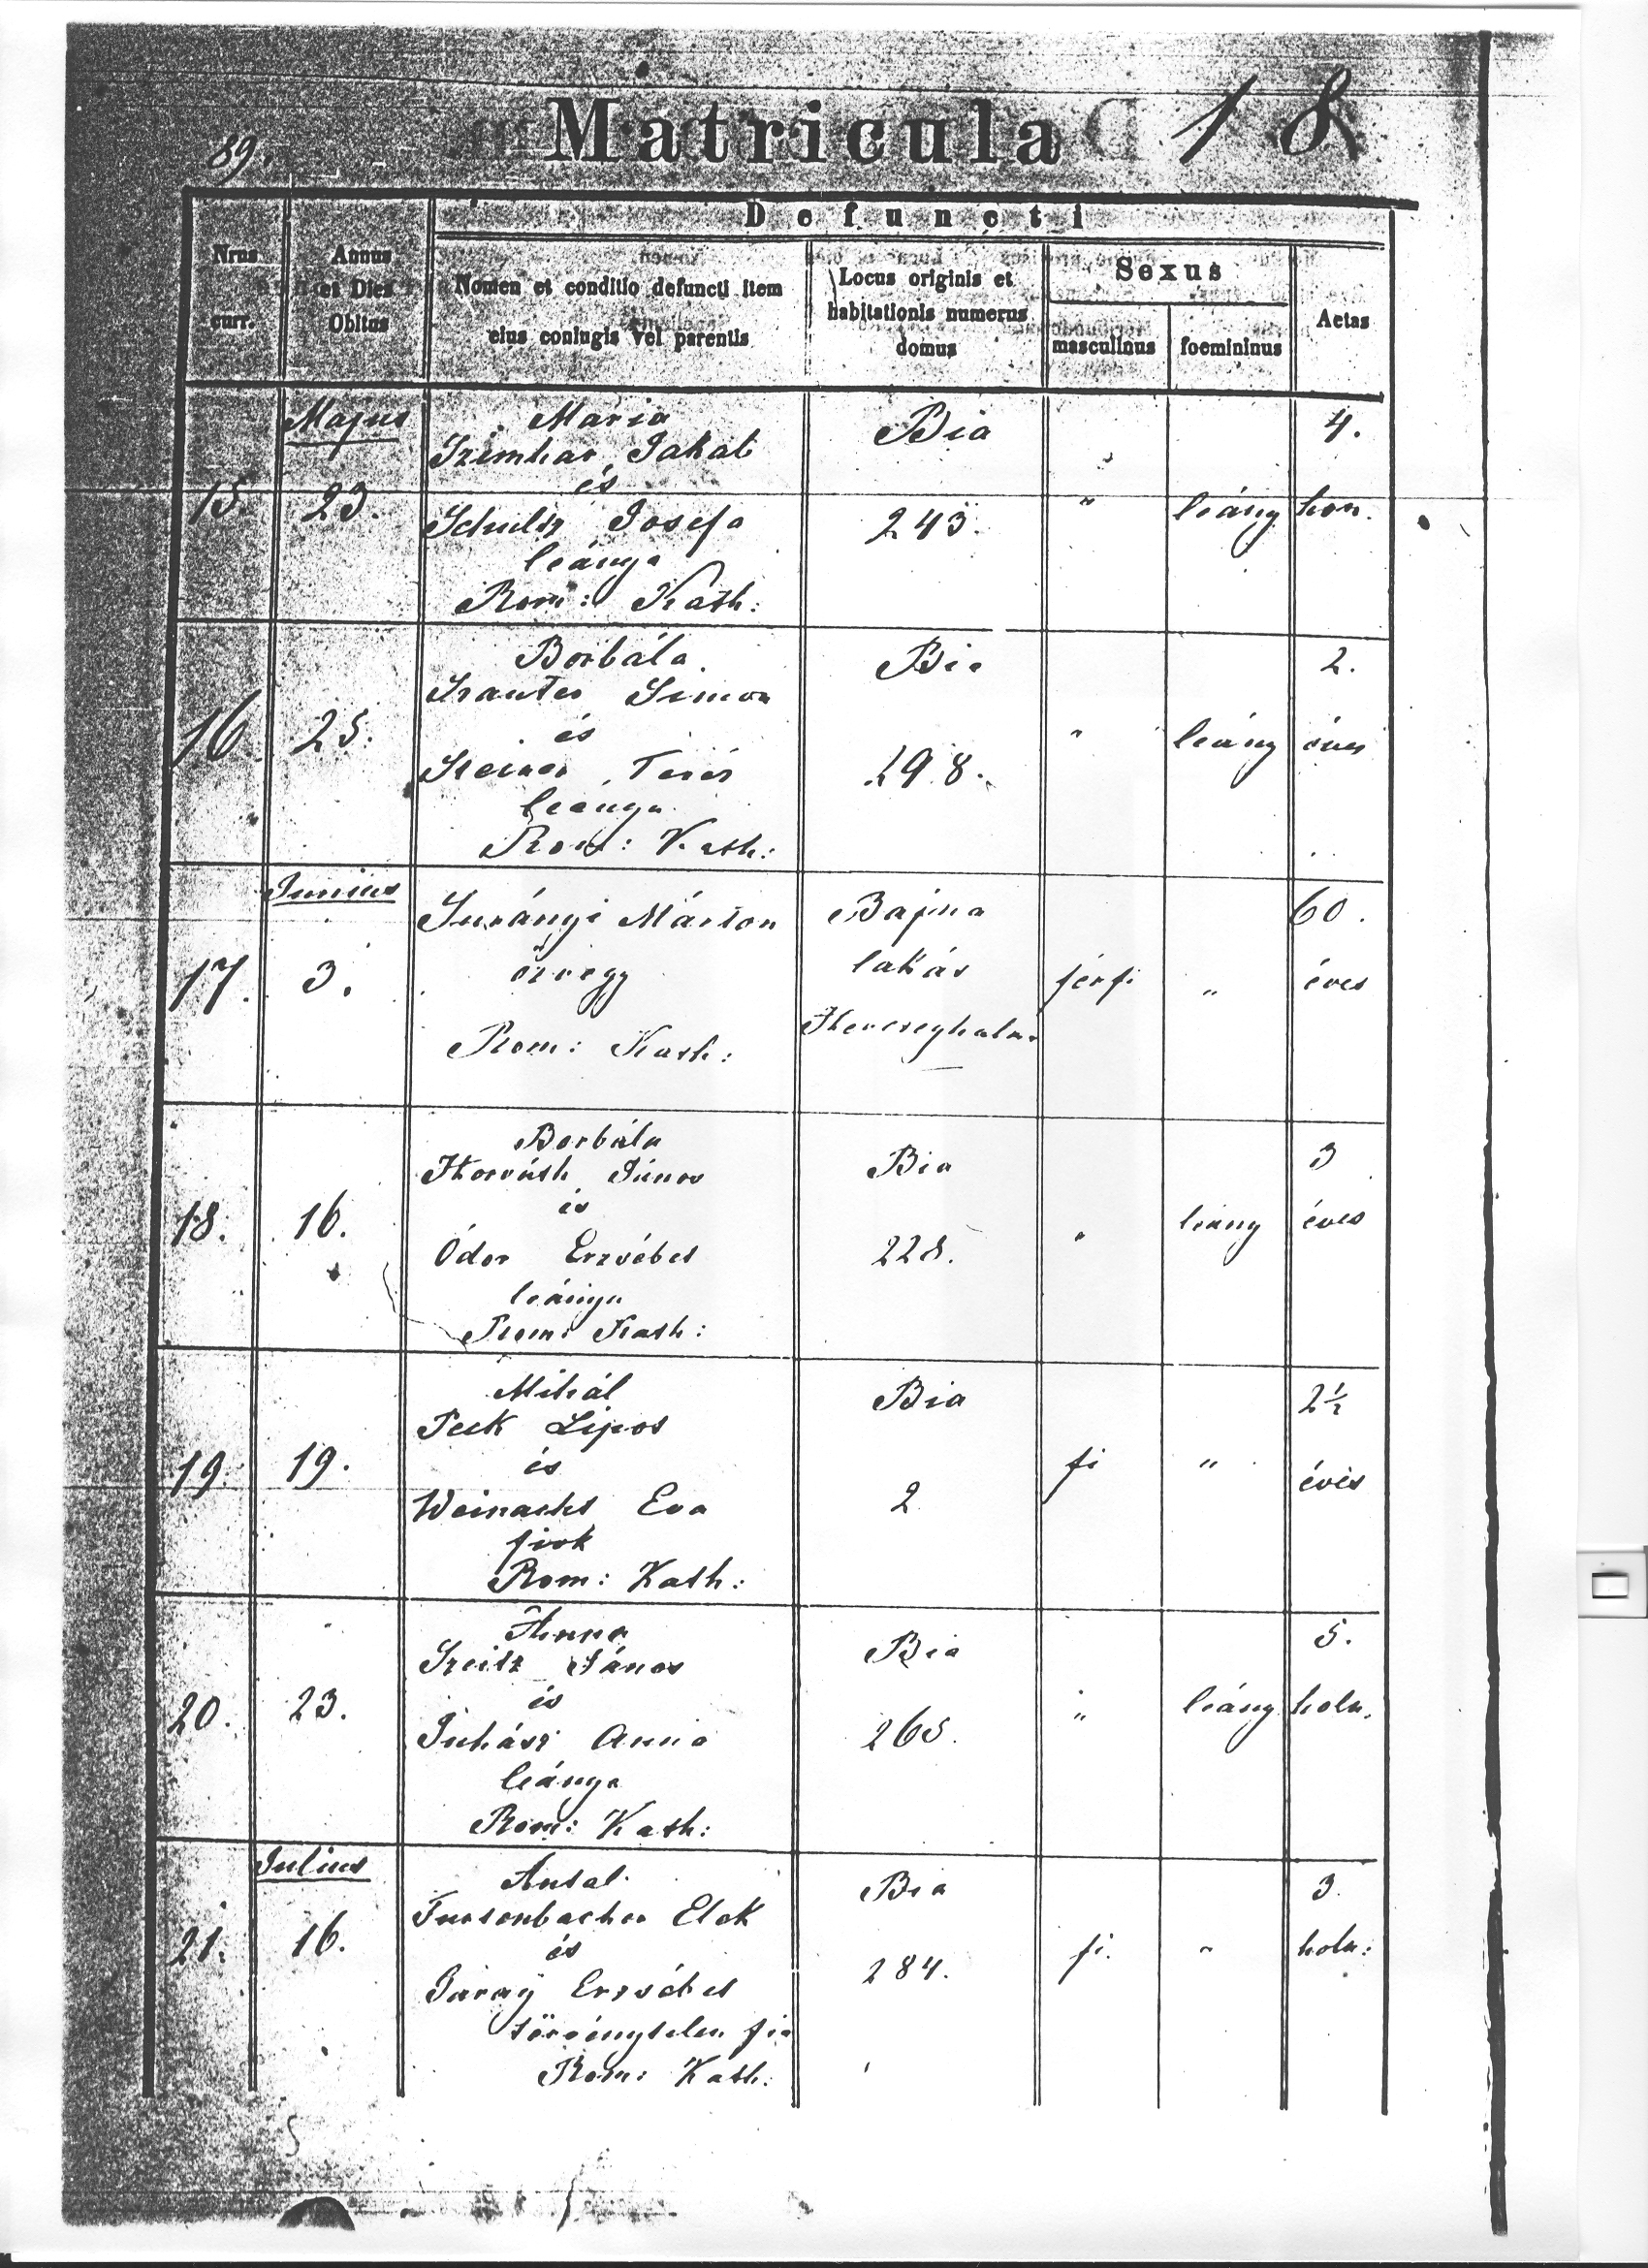 89.
Matricula 18
Defuncti
Nrus
curr.
Annus
et Dies
Obitus
Nomen et conditio defuncti item
eius coniugis vel parentis
Locus originis et
habitationis numerus
domus
Sexus
masculinus
foemininus
Aetas
Majus
Maria
Bia
4.
Jakab
és
15.
23.
Josefa
243.
"
leány
hon.
leánya
Rom: Kath:
Borbála
Bia
2.
Simon
és
16.
25.
Teréz
298.
"
leány
éves
leánya
Rom: Kath:
Junius
Surányi Márton
Bajna
60.
özvegy
lakás
17.
3.
férfi
"
éves
Rom: Kath:
Herceghalm.
Borbála
Bia
3
Horváth János
és
18.
16.
"
leány
éves
Ódor Erzsébet
228.
leánya
Rom: Kath:
Mihál
Bia
2½
Peck Lipot
és
19.
19.
fi
"
éves
Weinacht Eva
2
fiok
Rom: Kath:
Anna
Bia
5.
Szeitz János
és
20.
23.
"
leány
holn.
Juhász Anna
265.
leánya
Rom: Kath:
Julius
Antal
Bia
3.
Elek
és
21.
16.
fi.
"
holn:
Erzsébet
284.
törvénytelen fia
Rom: Kath: